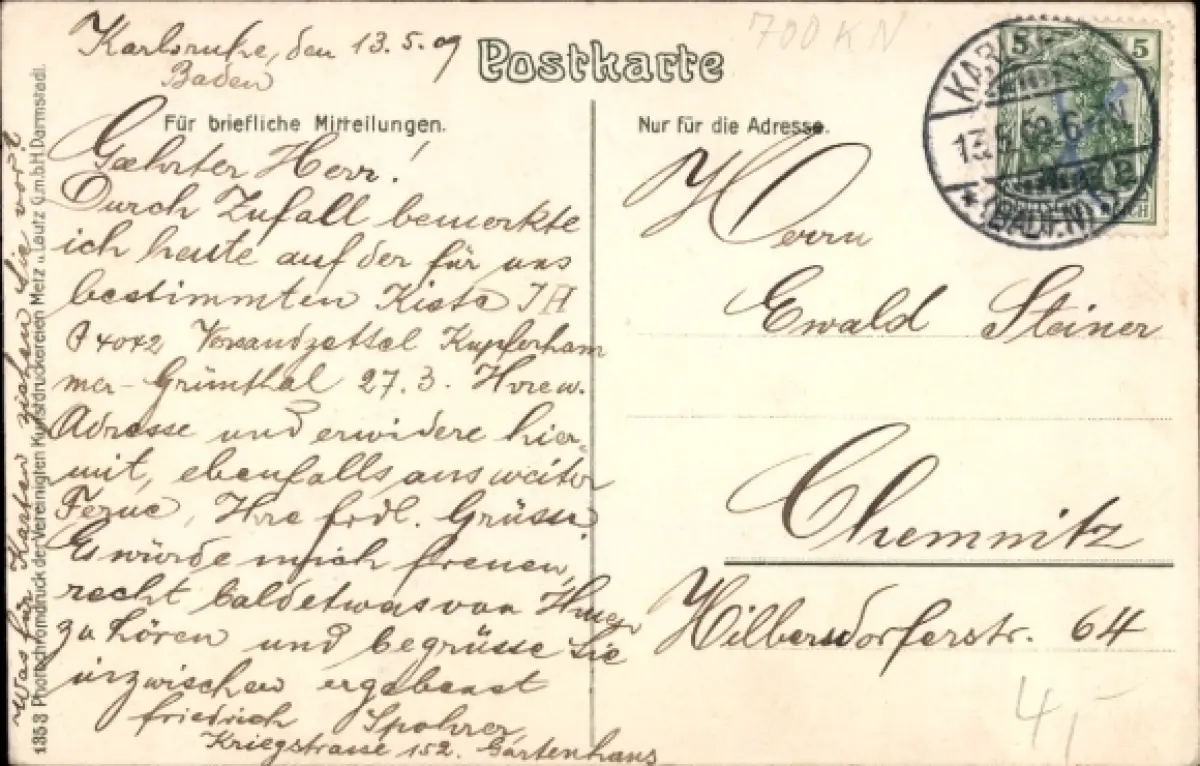 Karlsruhe, den 13.5.09
Baden
Postkarte
700 KN
Für briefliche Mitteilungen.
Geehrter Herr!
Durch Zufall bemerkte
ich heute auf der für uns
bestimmten Kiste IH
4042 Versandzettel Kupferham
mer-Grünthal 27.3. Ihre w.
Adresse und erwidere hier-
mit, ebenfalls aus weiter
Ferne, Ihre frdl. Grüsse
Es würde mich freuen,
recht bald etwas von Ihnen
zu hören und begrüsse Sie
inzwischen ergebenst
Friedrich Spohrer,
Kriegstrasse 152. Gartenhaus
Was für Karten ziehen Sie vor?
1353 Photochromdruck der Vereinigten Kunstdruckereien Metz u. Lautz G.m.b.H. Darmstadt.
Nur für die Adresse.
Herrn
Ewald Steiner
Chemnitz
Hilbersdorferstr. 64
4,-
5 5
13.5.09.6-
* (BADEN)